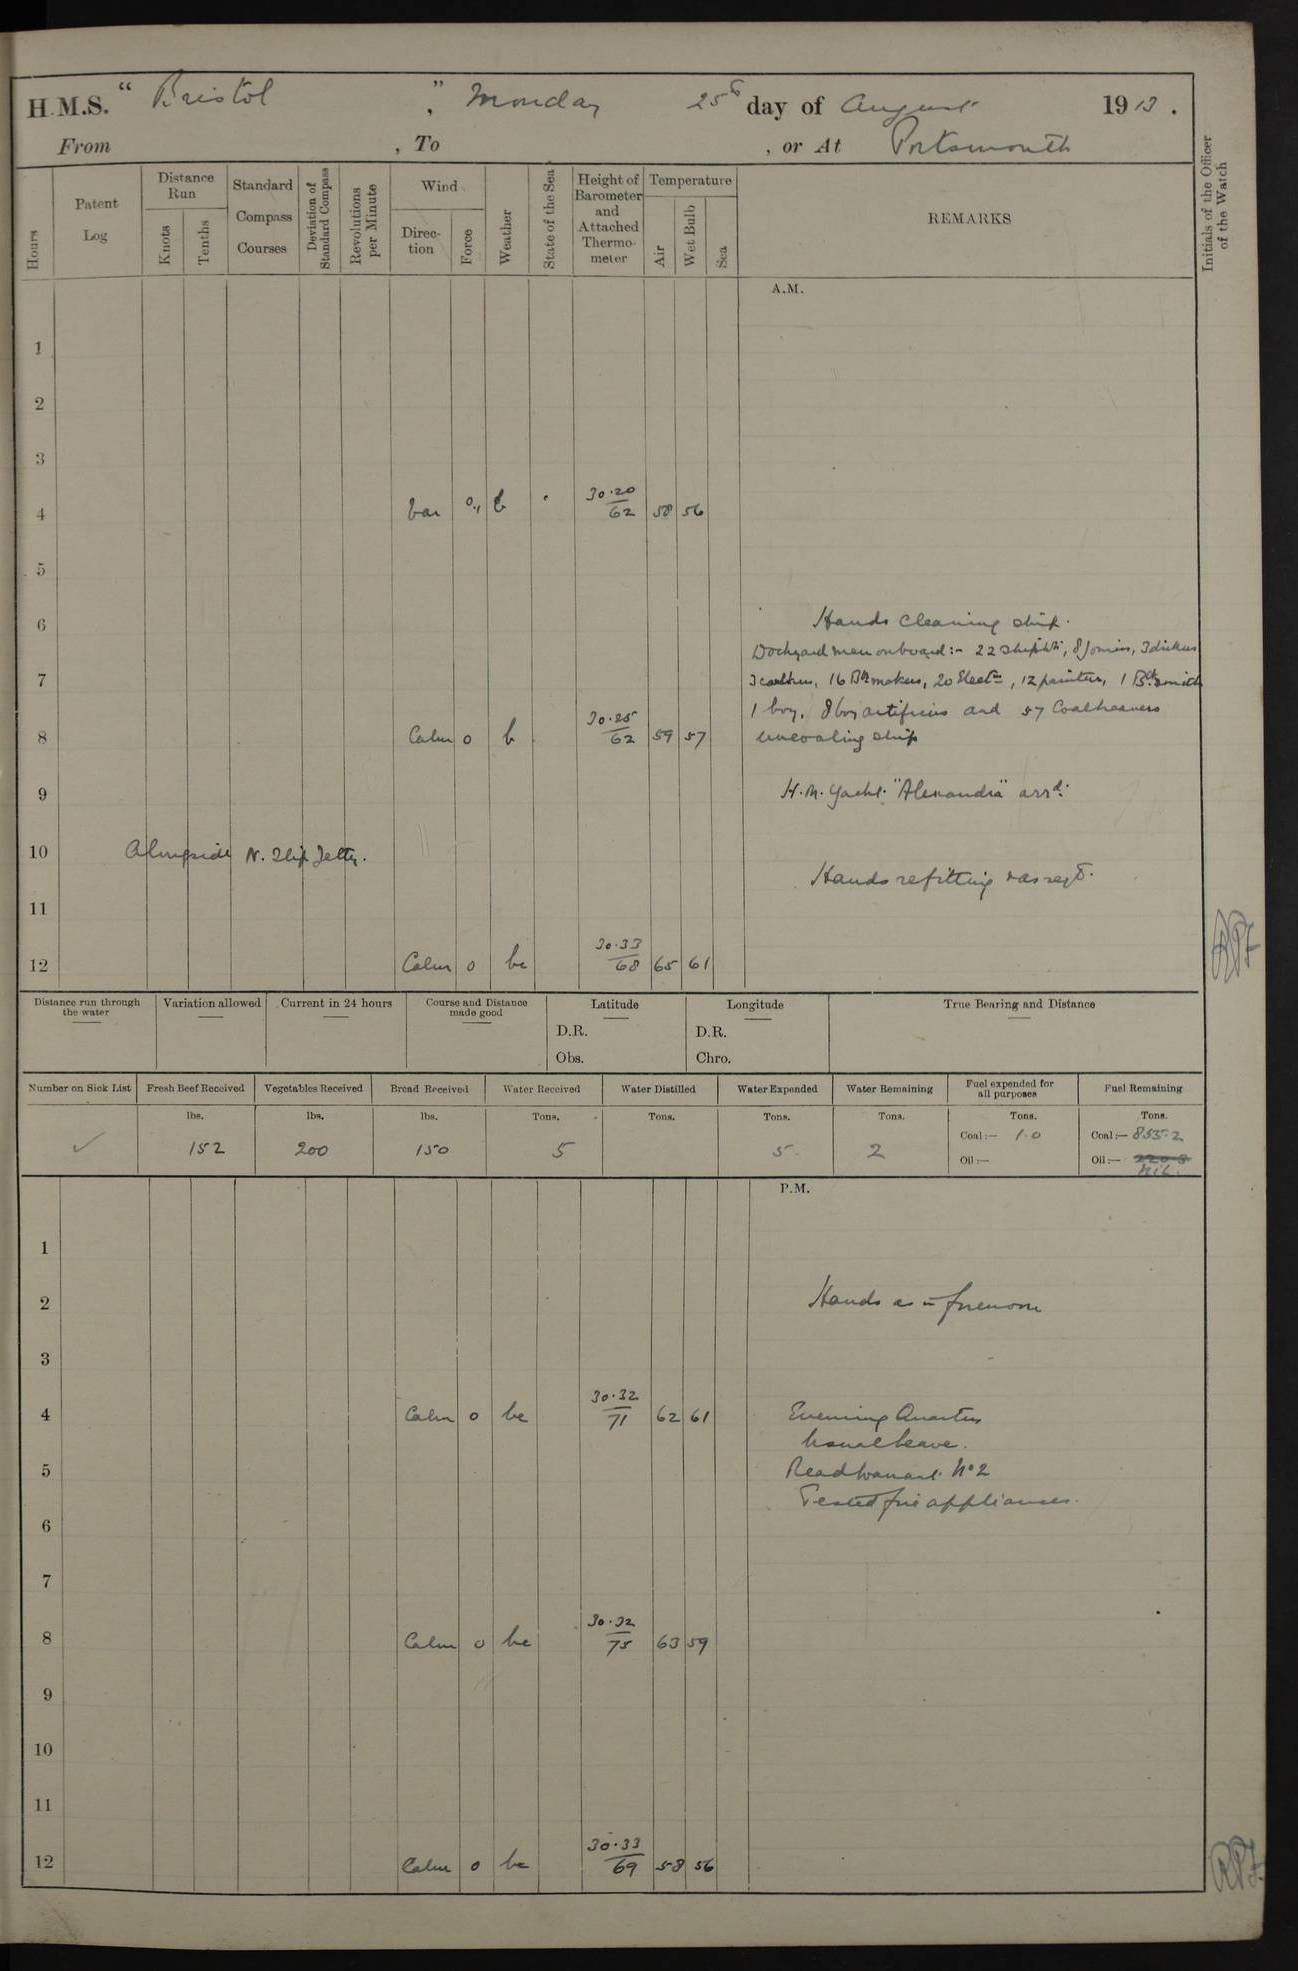 H.M.S. "Bristol", Monday 25th day of August 1913.
From , To , or At Portsmouth
Hours
Patent Log
Distance Run
Knots
Tenths
Standard Compass Courses
Deviation of Standard Compass
Revolutions per Minute
Wind
Direction
Force
Weather
State of the Sea
Height of Barometer and Attached Thermometer
Temperature
Air
Wet Bulb
Sea
REMARKS
Initials of the Officer of the Watch
A.M.
1
2
3
4 Var 0.1 b 30.20/62 58 56
5
6 Hands cleaning ship.
Dockyard men onboard:- 22 shipwts, 8 joiners, 3
7 3 16 Blr makers, 20 Elect, 12 painters, 1 Blk smith
1 boy, 8 boy artificers and 57 Coalheavers
8 Calm 0 b 30.25/62 59 57 uncoaling ship
9 H.M. Yacht "Alexandra" arrd.
10 Alongside N. Slip Jetty.
Hands refitting as reqd.
11
12 Calm 0 bc 30.33/68 65 61 RPF
Distance run through the water
Variation allowed
Current in 24 hours
Course and Distance made good
Latitude
D.R.
Obs.
Longitude
D.R.
Chro.
True Bearing and Distance
Number on Sick List
Fresh Beef Received
Vegetables Received
Bread Received
Water Received
Water Distilled
Water Expended
Water Remaining
Fuel expended for all purposes
Fuel Remaining
lbs. lbs. lbs. Tons. Tons. Tons. Tons. Tons. Tons.
✓ 152 200 150 5 5 2 Coal:— 1.0 Coal:— 855.2
Oil:— Oil:— 220.8
Nil.
P.M.
1
2 Hands as in forenoon
3
4 Calm 0 bc 30.32/71 62 61 Evening Quarters
Usual leave.
5 Read Warrant No 2
Tested fire appliances.
6
7
8 Calm 0 bc 30.32/75 63 59
9
10
11
12 Calm 0 bc 30.33/69 58 56 RPF